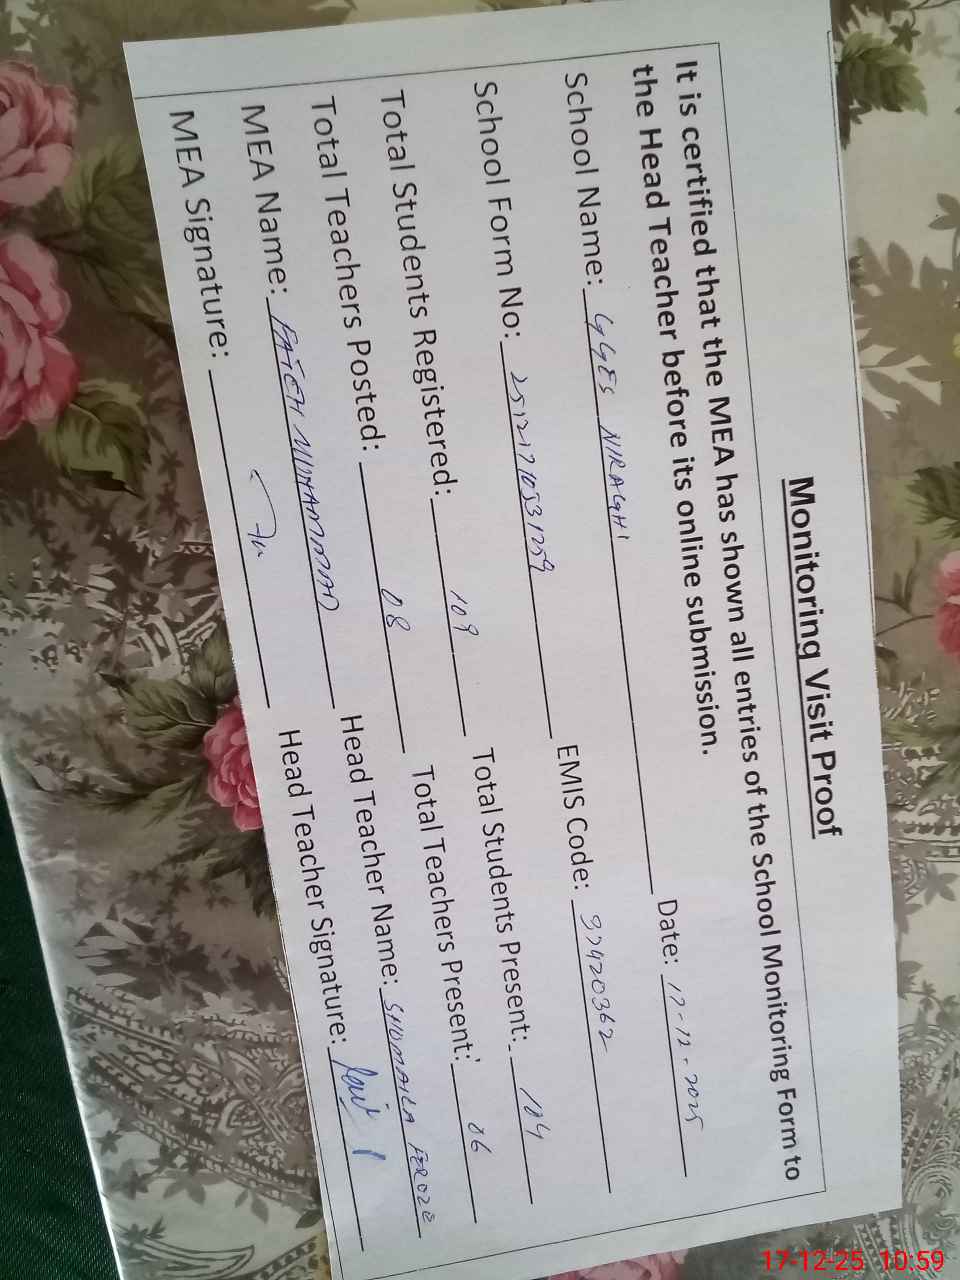 Monitoring Visit Proof
It is certified that the MEA has shown all entries of the School Monitoring Form to
the Head Teacher before its online submission.
School Name: GGES NIRAGHI Date: 17-12-2025
School Form No: EMIS Code: 37420362
Total Students Registered: 109 Total Students Present: 104
Total Teachers Posted: 08 Total Teachers Present: 06
MEA Name: FATEH MUHAMMAD Head Teacher Name: SHOMAILA FEROZE
MEA Signature: Head Teacher Signature:
17-12-25 10:59